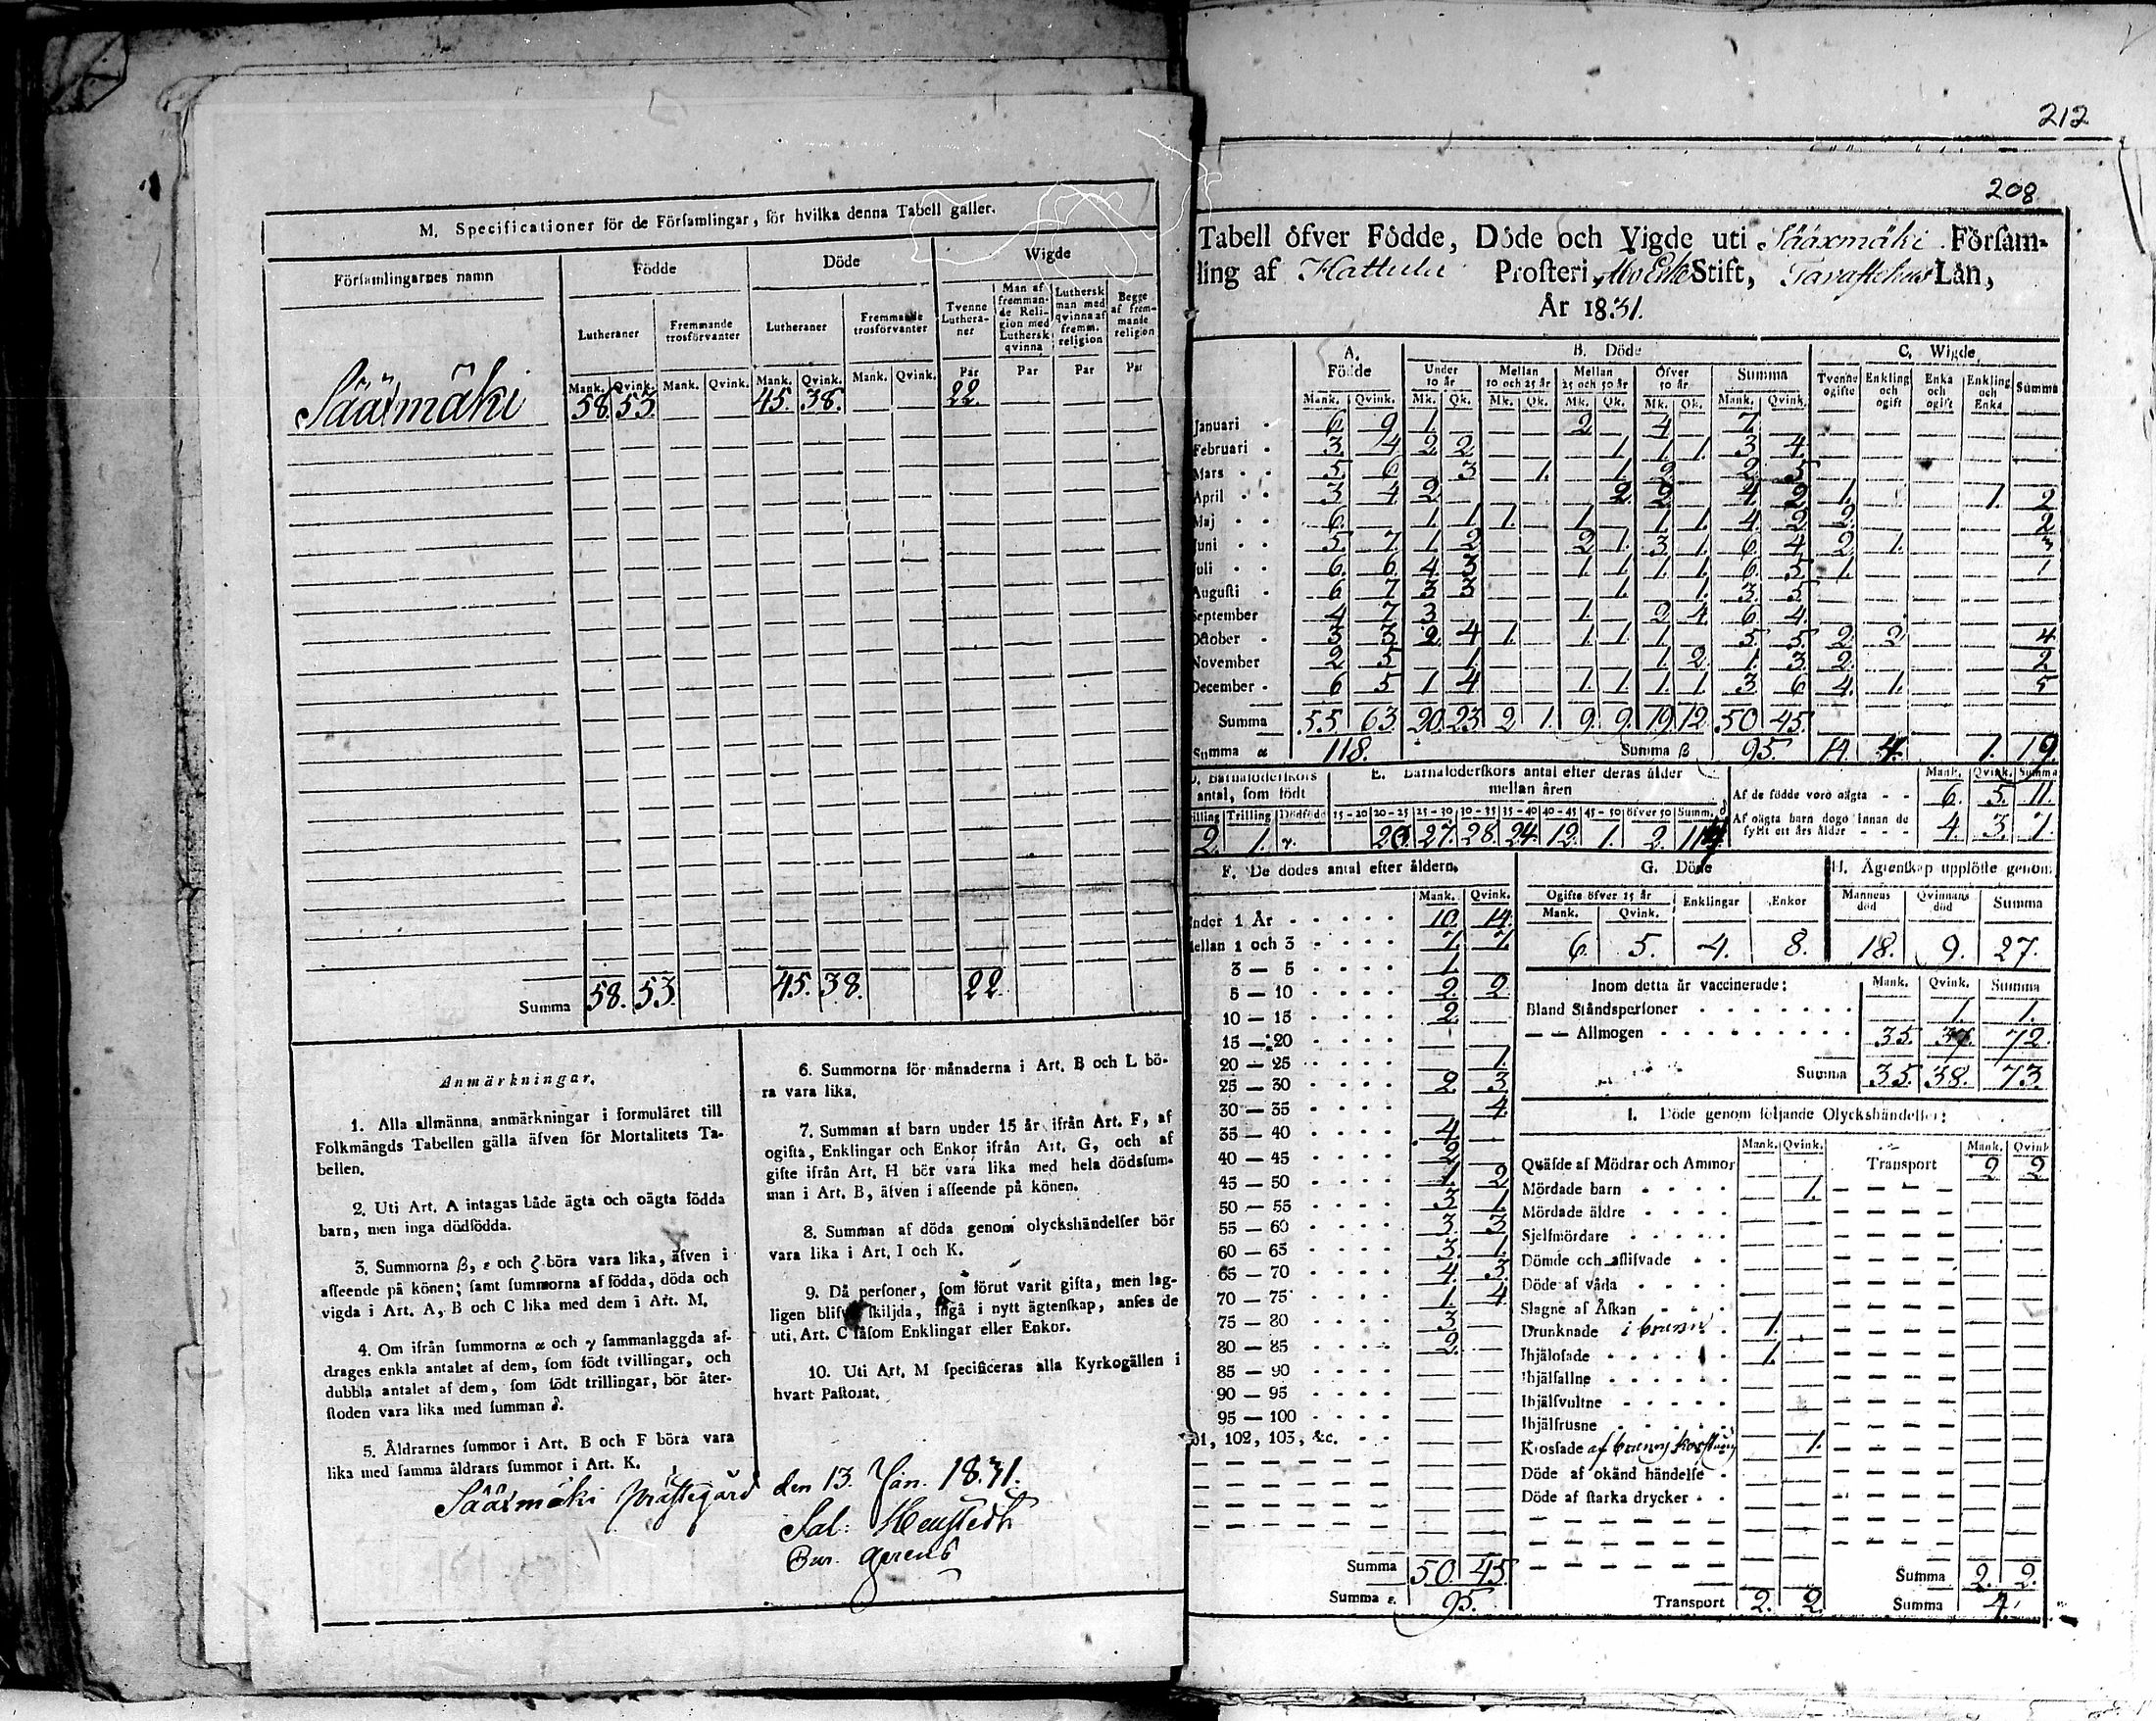 M. Specificationer för de Församlingar, för hvilka denna Tabell gäller.
Församlingarnes namn Födde Döde Wigde
Lutheraner Fremmande trosförvanter Lutheraner Fremmande trosförvanter Tvenne Lutheraner Man af fremmande Religion med Luthersk qvinna Luthersk man med qvinna af fremm. religion Begge af fremmande religion
Mank. Qvink. Mank. Qvink. Mank. Qvink. Mank. Qvink. Par Par Par Par
Sääxmäki 58. 53. 45. 38. 22.
Summa 58. 53. 45. 38. 22.
Anmärkningar.
1. Alla allmänna anmärkningar i formuläret till
Folkmängds Tabellen gälla äfven för Mortalitets Ta-
bellen.
2. Uti Art. A intagas både ägta och oägta födda
barn, men inga dödfödda.
3. Summorna β, ε och ζ böra vara lika, äfven i
afseende på könen; samt summorna af födda, döda och
vigda i Art. A, B och C lika med dem i Art. M.
4. Om ifrån summorna α och γ sammanlaggda af-
drages enkla antalet af dem, som födt tvillingar, och
dubbla antalet af dem, som födt trillingar, bör åter-
stoden vara lika med summan δ.
5. Åldrarnes summor i Art. B och F böra vara
lika med samma åldrars summor i Art. K.
6. Summorna för månaderna i Art. B och L bö-
ra vara lika.
7. Summan af barn under 15 år ifrån Art. F, af
ogifta, Enklingar och Enkor ifrån Art. G, och af
gifte ifrån Art. H bör vara lika med hela dödssum-
man i Art. B, äfven i afseende på könen.
8. Summan af döda genom olyckshändelser bör
vara lika i Art. I och K.
9. Då personer, som förut varit gifta, men lag-
ligen blifvit skiljda, ingå i nytt ägtenskap, anses de
uti Art. C såsom Enklingar eller Enkor.
10. Uti Art. M specificeras alla Kyrkogällen i
hvart Pastorat.
Sääxmäki prästegård den 13. Jan. 1831.
Sal:
gerens
212
208
Tabell öfver Födde, Döde och Vigde uti Sääxmäki Församling
af Hattula Prosteri, Åbo Erke Stift, Tavastehus Län,
År 1831.
A. Födde B. Döde C. Wigde
Under 10 år Mellan 10 och 25 år Mellan 25 och 50 år Öfver 50 år Summa Tvenne ogifte Enkling och ogift Enka och ogift Enkling och Enka Summa
Mank. Qvink. Mk. Qk. Mk. Qk. Mk. Qk. Mk. Qk. Mank. Qvink.
Januari 6 9 1 2 4 7
Februari 3 4 2 2 1 1 1 3 4
Mars 5 6 3 1. 1 2 2 5
April 3 4 2 2 2 4 2 1. 1. 2
Maj 6 1 1 1. 1 1 1 4 2 2. 2
Juni 5 7 1 2 2 1. 3 1. 6 4 2 1. 3
Juli 6 6 4 3 1. 1 1. 1 6 5 1. 1
Augusti 6 7 3 3 1. 1. 3 5
September 4 7 3 1. 2 4 6 4
October 3 3 2 4 1. 1 1 1 5 5 2 2 4
November 2 5 1. 1. 2 1. 3 2. 2
December 6 5 1 4 1. 1. 1. 1 3 6 4. 1. 5
Summa 55 63. 20. 23. 2 1. 9. 9. 19. 12. 50 45.
Summa α 118. Summa β 95. 14. 4. 1. 19.
antal, som födt E. Barnaföderskors antal efter deras ålder
mellan åren
Trilling Dödfödde 15-20 20-25 25-30 30-35 35-40 40-45 45-50 öfver 50 Summa
2. 1. 20. 27. 28. 24. 12. 1. 2.
Mank. Qvink. Summa
Af de födde voro oägta 6. 5. 11.
Af oägta barn dogo innan de
fyllt ett års ålder 4. 3. 7.
F. De dödes antal efter åldern.
Mank. Qvink.
Under 1 År 10 14.
Mellan 1 och 3 7 7
3 — 5 1
5 — 10 2. 2
10 — 15 2
15 — 20
20 — 25 1.
25 — 30 2 3
30 — 35 4.
35 — 40 4
40 — 45 2
45 — 50 1 2
50 — 55 3 1
55 — 60 3. 3
60 — 65 3. 1.
65 — 70 4. 3.
70 — 75 1. 4
75 — 80 3
80 — 85 2.
85 — 90
90 — 95
95 — 100
101, 102, 103, &c.
Summa 50. 45.
Summa ε. 95.
G. Döde
Ogifte öfver 15 år Enklingar Enkor
Mank. Qvink.
6. 5. 4. 8.
H. Ägtenskap upplöste genom
Mannens död Qvinnans död Summa
18. 9. 27.
Inom detta år vaccinerade: Mank. Qvink. Summa
Bland Ståndspersoner 1. 1.
— — Allmogen 35. 37. 72.
Summa 35. 38. 73.
I. Döde genom följande Olyckshändelser:
Mank. Qvink. Mank. Qvink
Qväfde af Mödrar och Ammor Transport 2 2
Mördade barn 1.
Mördade äldre
Sjelfmördare
Dömde och aflifvade
Döde af våda
Slagne af Åskan
Drunknade i brunn 1.
Ihjälosade 1.
Ihjälfallne
Ihjälsvultne
Ihjälfrusne
Krossade af 1.
Döde af okänd händelse
Döde af starka drycker
Summa 2. 2.
Transport 2. 2. Summa 4.